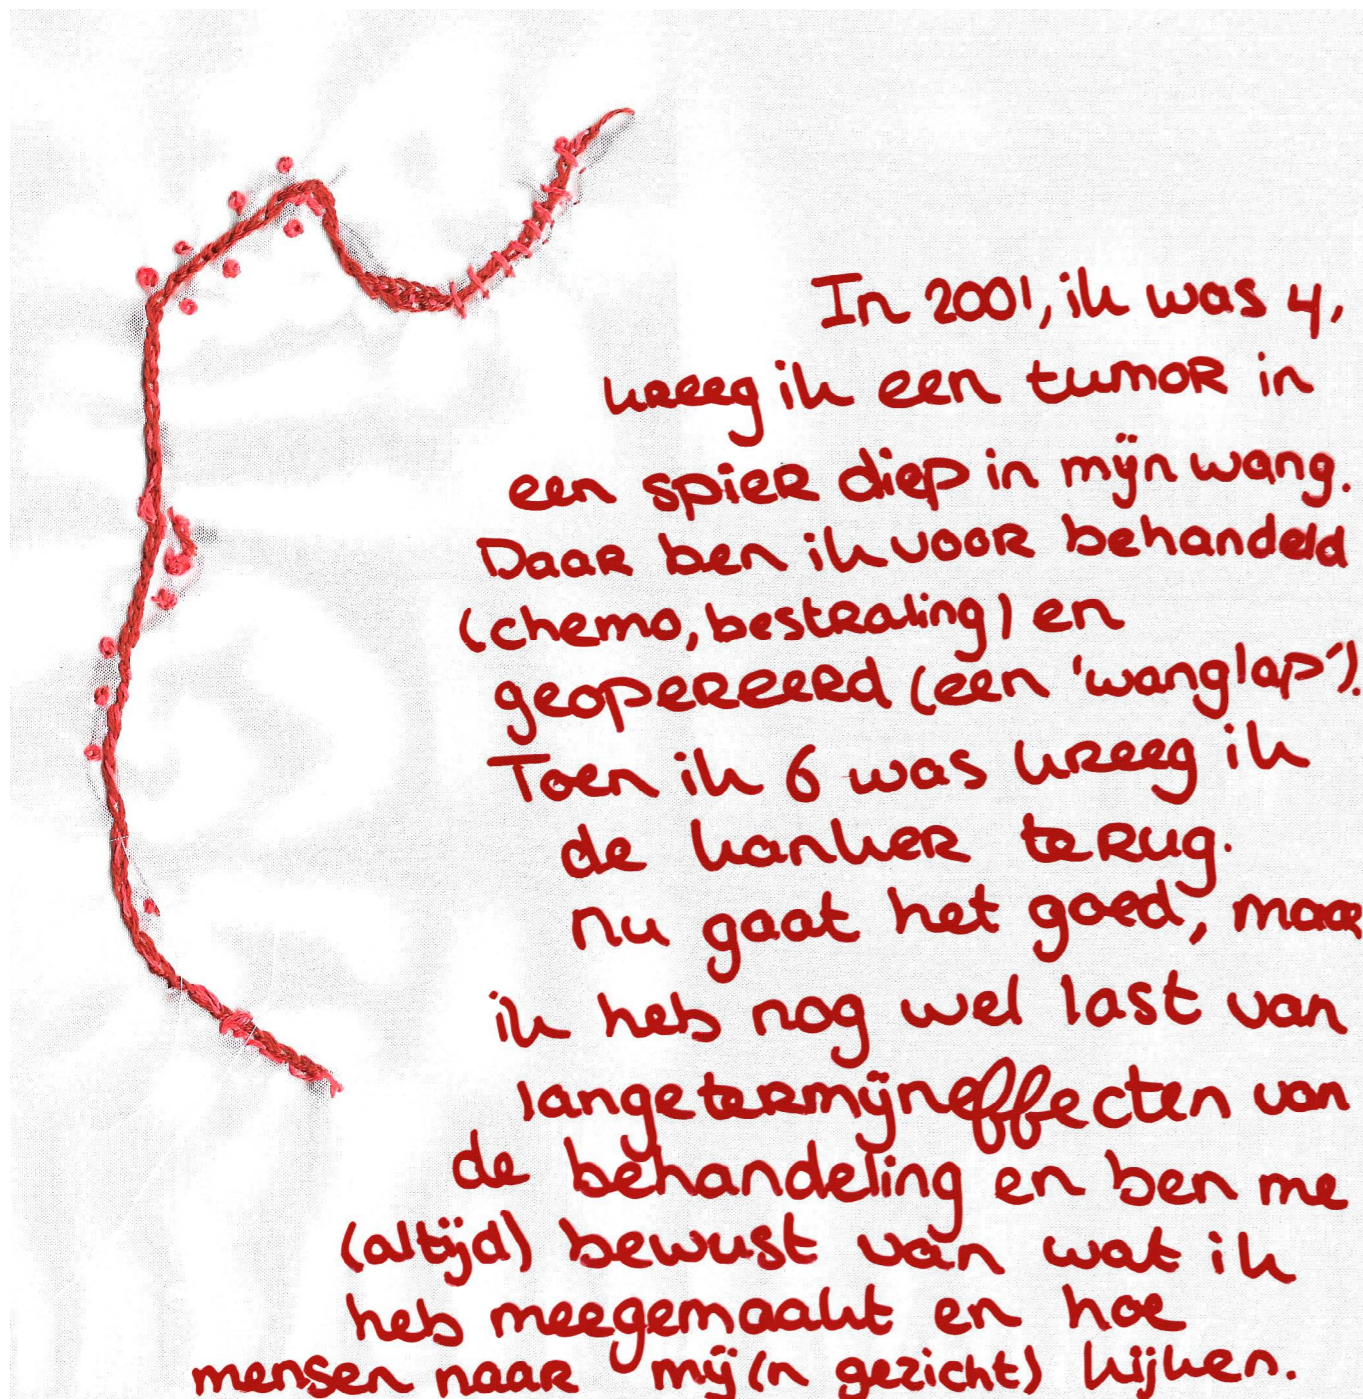 In 2001, ik was 4,
kreeg ik een tumor in
een spier diep in mijn wang.
Daar ben ik voor behandeld
(chemo, bestraling) en
geopereerd (een 'wanglap').
Toen ik 6 was kreeg ik
de kanker terug.
nu gaat het goed, maar
ik heb nog wel last van
langetermijneffecten van
de behandeling en ben me
(altijd) bewust van wat ik
heb meegemaakt en hoe
mensen naar mij(n gezicht) kijken.